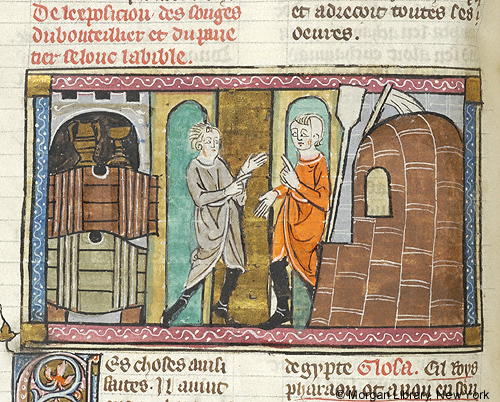 De lexposicion des songes
du bouteillier et du pane
tier selonc labible.
et adrecoit toutes ses
oeures.
Es choses ainsi
faites. Il auint
degypte Glosa. Cil roys
pharaon ot a non en son
© Morgan Library, New York